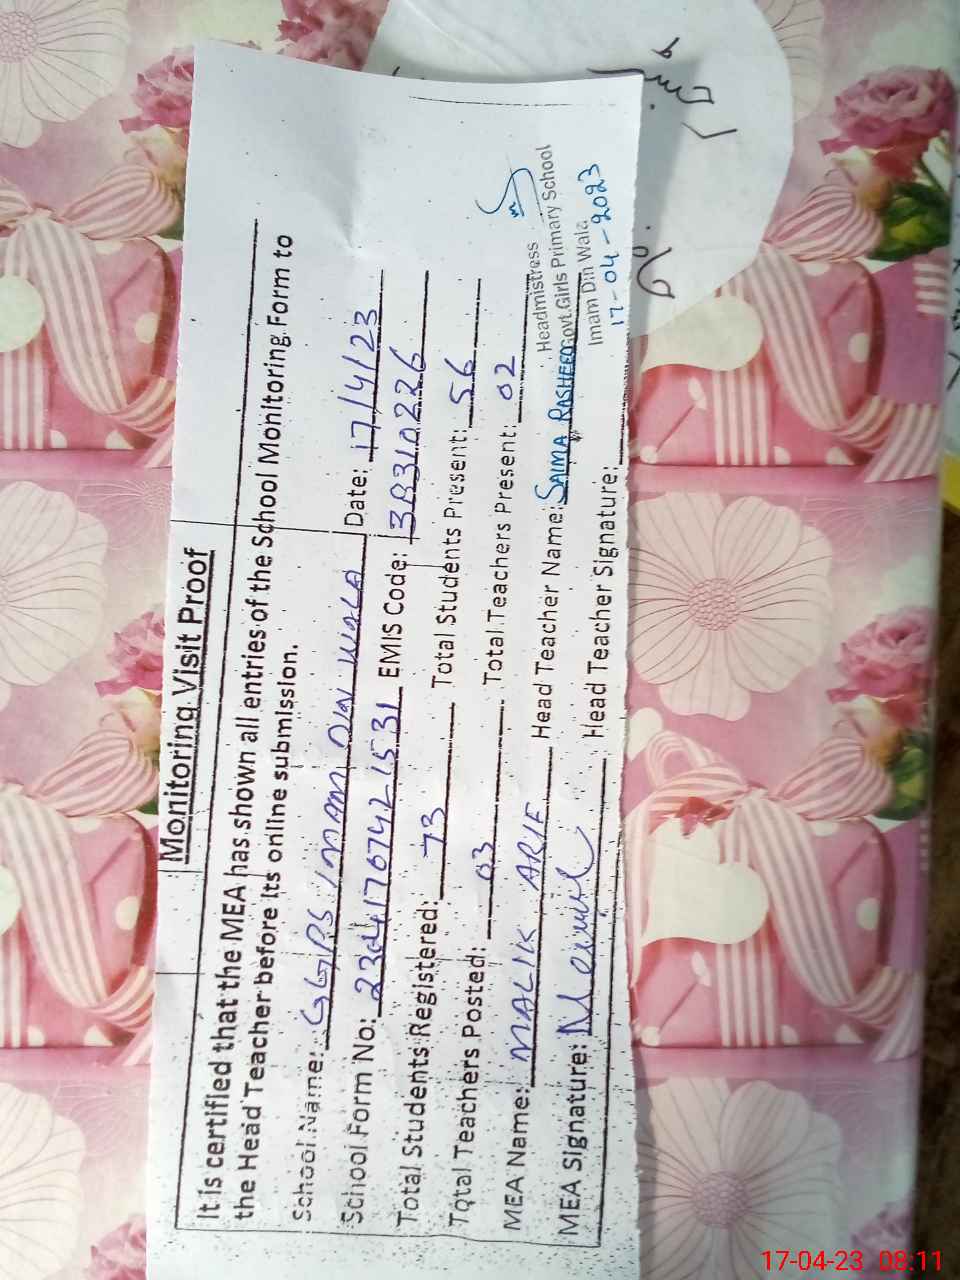 Monitoring Visit Proof
It is certified that the MEA has shown all entries of the School Monitoring Form to
the Head Teacher before its online submission.
School Name: GGPS IMAM DIN WALA Date: 17/4/23
School Form No: EMIS Code:
Total Students Registered: 73 Total Students Present: 56
Total Teachers Posted: 03 Total Teachers Present: 02
MEA Name: MALIK ARIF Head Teacher Name: SAIMA RASHEED
MEA Signature: Head Teacher Signature:
Headmistress
Govt.Girls Primary School
Imam Din Wala
17-04-2023
17-04-23 08:11